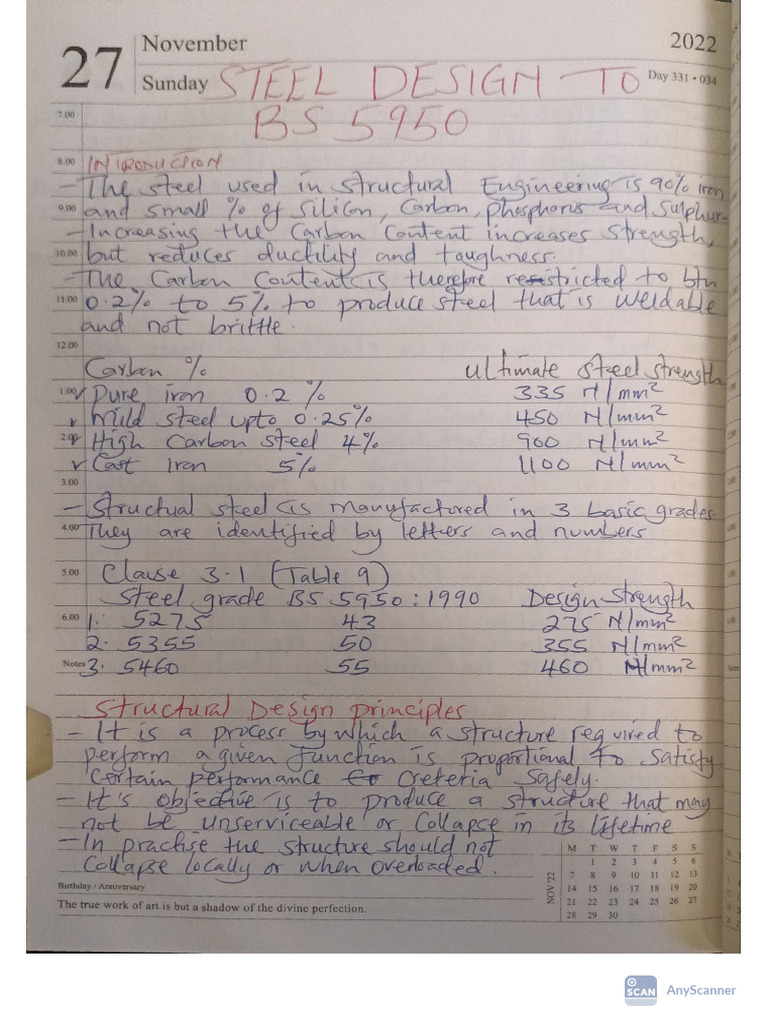 27 November 2022
Sunday Day 331 • 034
STEEL DESIGN TO
7.00
BS 5950
8.00 INTRODUCTION
- The steel used in structural Engineering is 90% iron
9.00 and small % of silicon, Carbon, phosphorus and sulphur.
- Increasing the Carbon Content increases strength,
10.00 but reduces ductility and toughness.
- The Carbon Content is therefore restricted to btn
11.00 0.2% to 5% to produce steel that is weldable
and not brittle.
12.00
Carbon % Ultimate steel strength
1.00 ✓ Pure iron 0.2 % 335 N/mm²
✓ Mild steel upto 0.25% 450 N/mm²
2.00 ✓ High Carbon steel 4% 900 N/mm²
✓ Cast Iron 5% 1100 N/mm²
3.00
- Structual steel is manufactored in 3 basic grades.
4.00 They are identified by letters and numbers
5.00 Clause 3.1 (Table 9)
Steel grade BS 5950:1990 Design Strength
6.00 1. 5275 43 275 N/mm²
2. 5355 50 355 N/mm²
Notes 3. 5460 55 460 N/mm²
Structural Design principles
- It is a process by which a structure required to
perform a given function is proportional to satisfy
certain performance creteria safely.
- It's objective is to produce a structure that may
not be unserviceable or collapse in its lifetime
- In practise the structure should not
collapse locally or when overloaded.
Birthday / Anniversary
The true work of art is but a shadow of the divine perfection.
NOV '22
M T W T F S S
1 2 3 4 5 6
7 8 9 10 11 12 13
14 15 16 17 18 19 20
21 22 23 24 25 26 27
28 29 30
SCAN AnyScanner